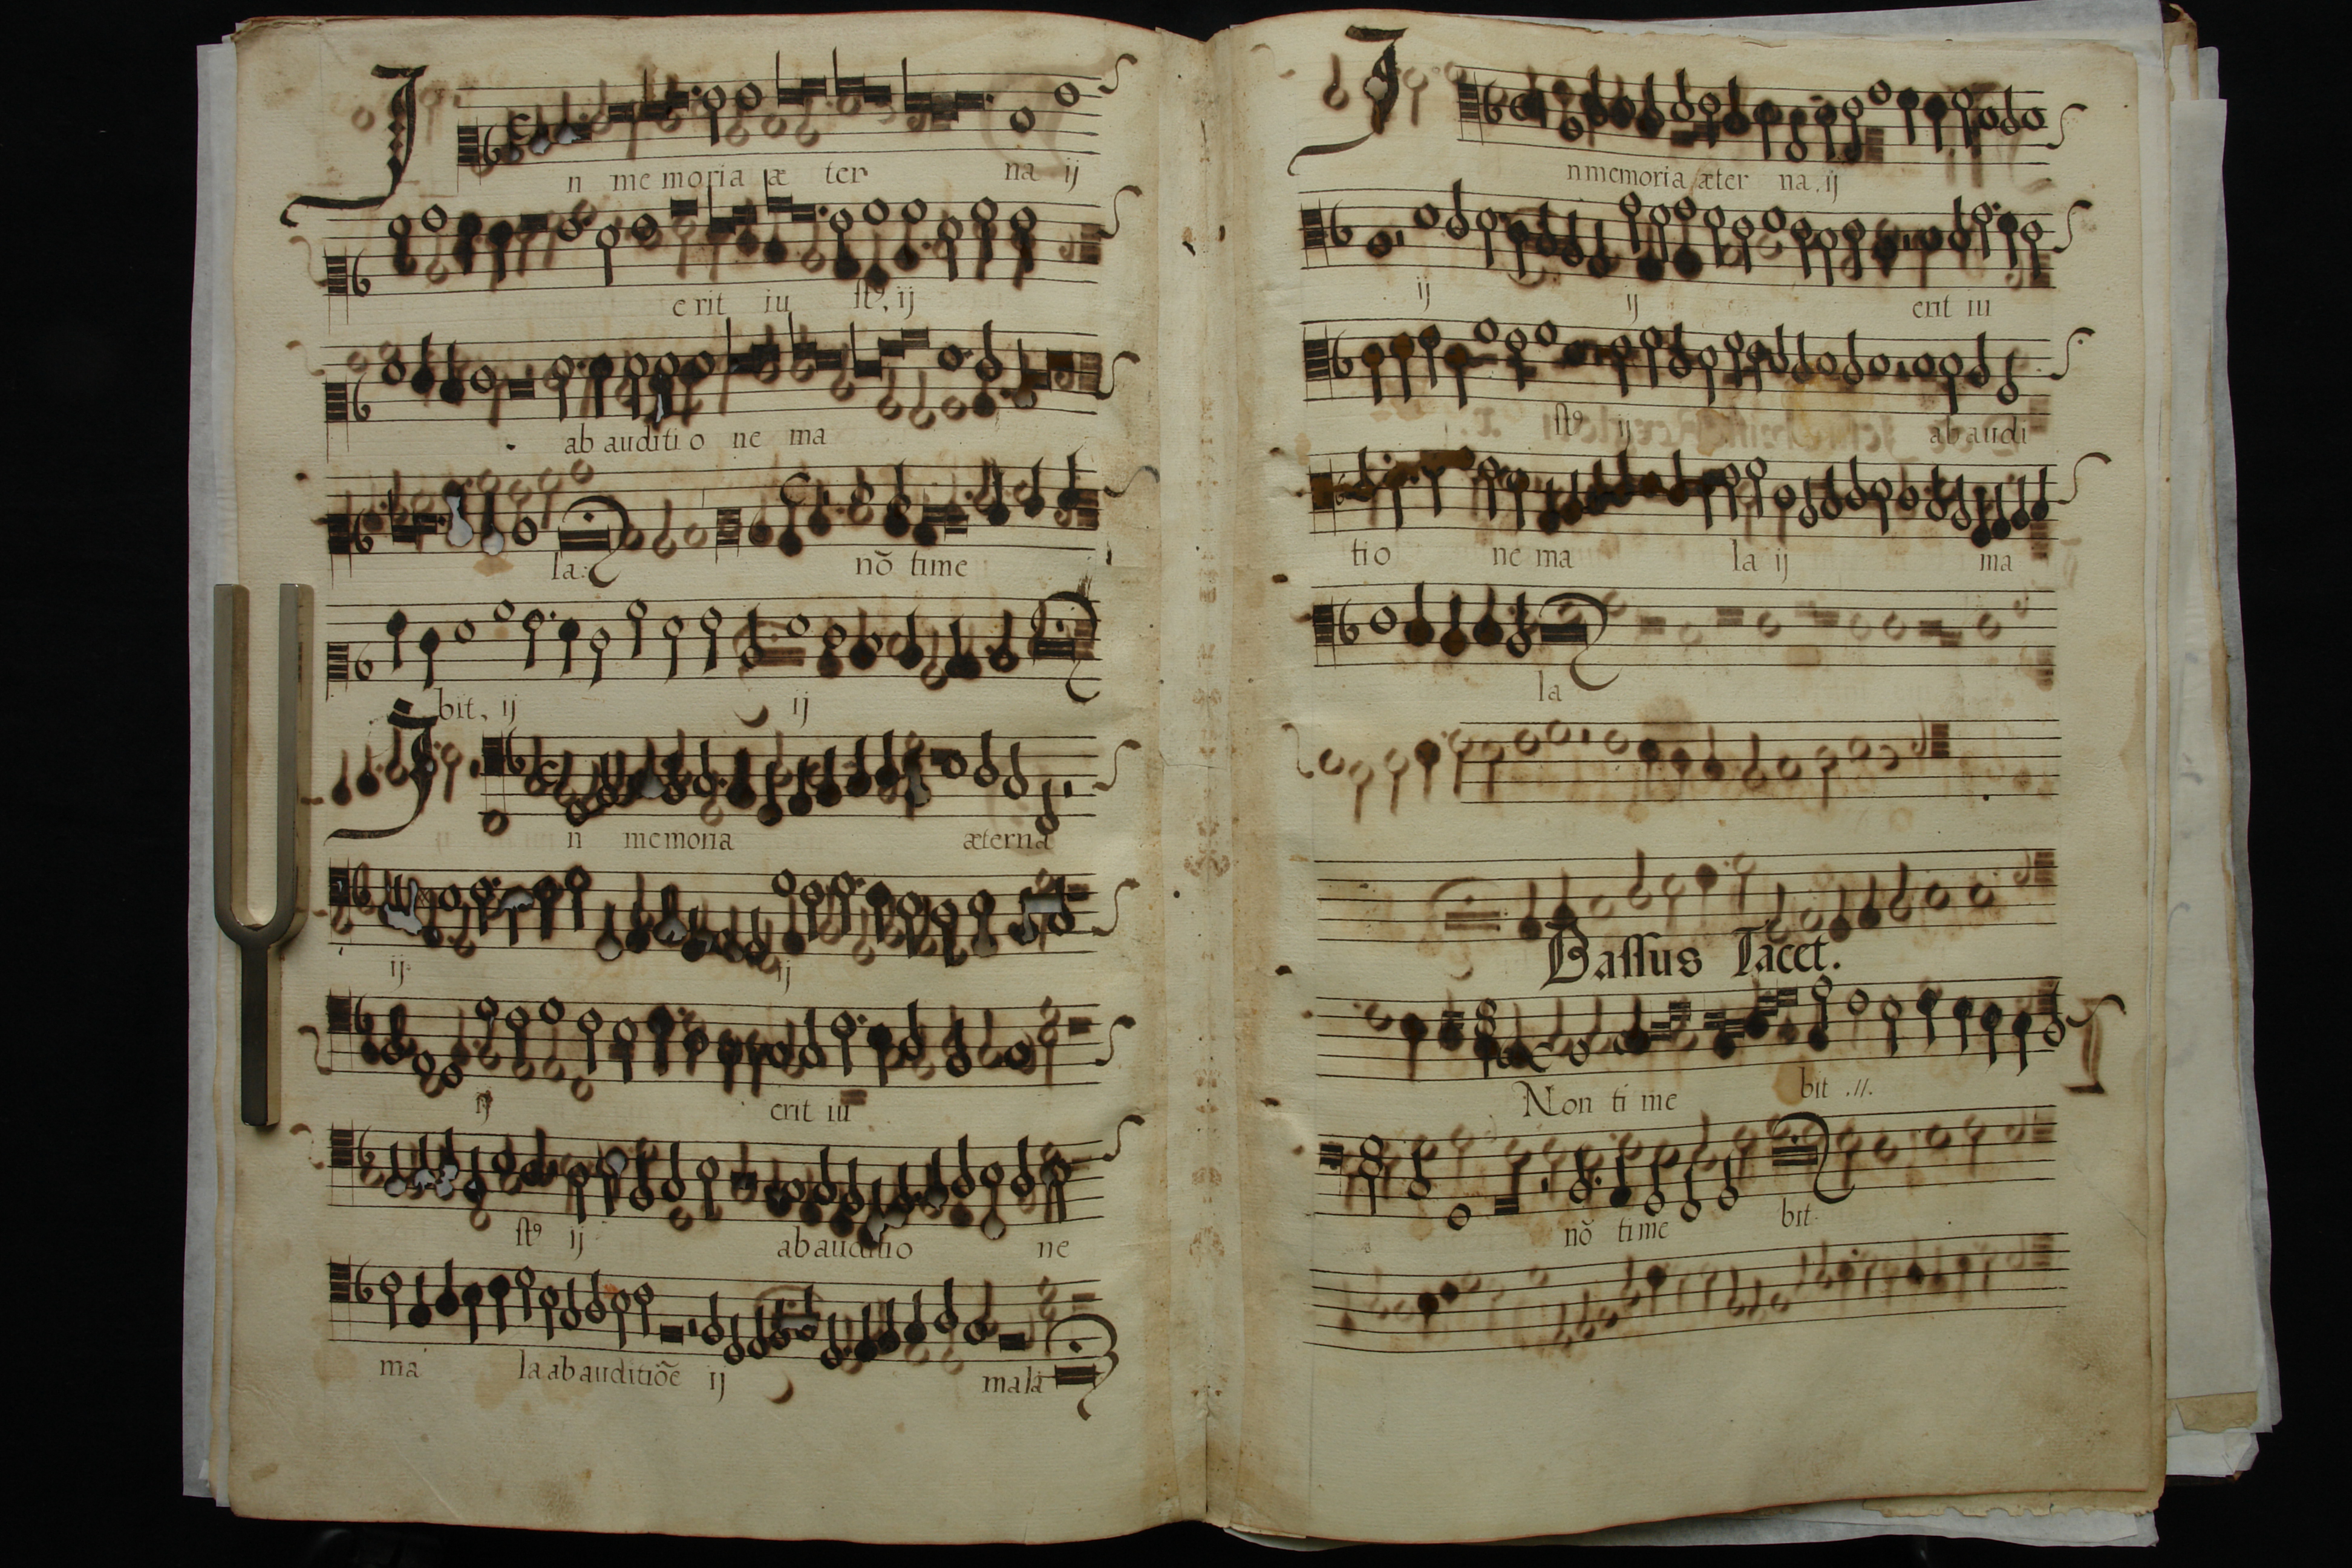 In memoria æ ter na ij
erit iu stꝰ, ij
ab auditio ne ma
la: nõ time
bit, ij ij
In memoria æterna
ij ij
ij erit iu
stꝰ ij ab auditio ne
ma la ab auditiõe ij mala
In memoria æter na, ij
ij ij erit iu
stꝰ ij ab audi
tio ne ma la ij ma
la
Bassus Tacet.
Non ti me bit .//.
nõ time bit